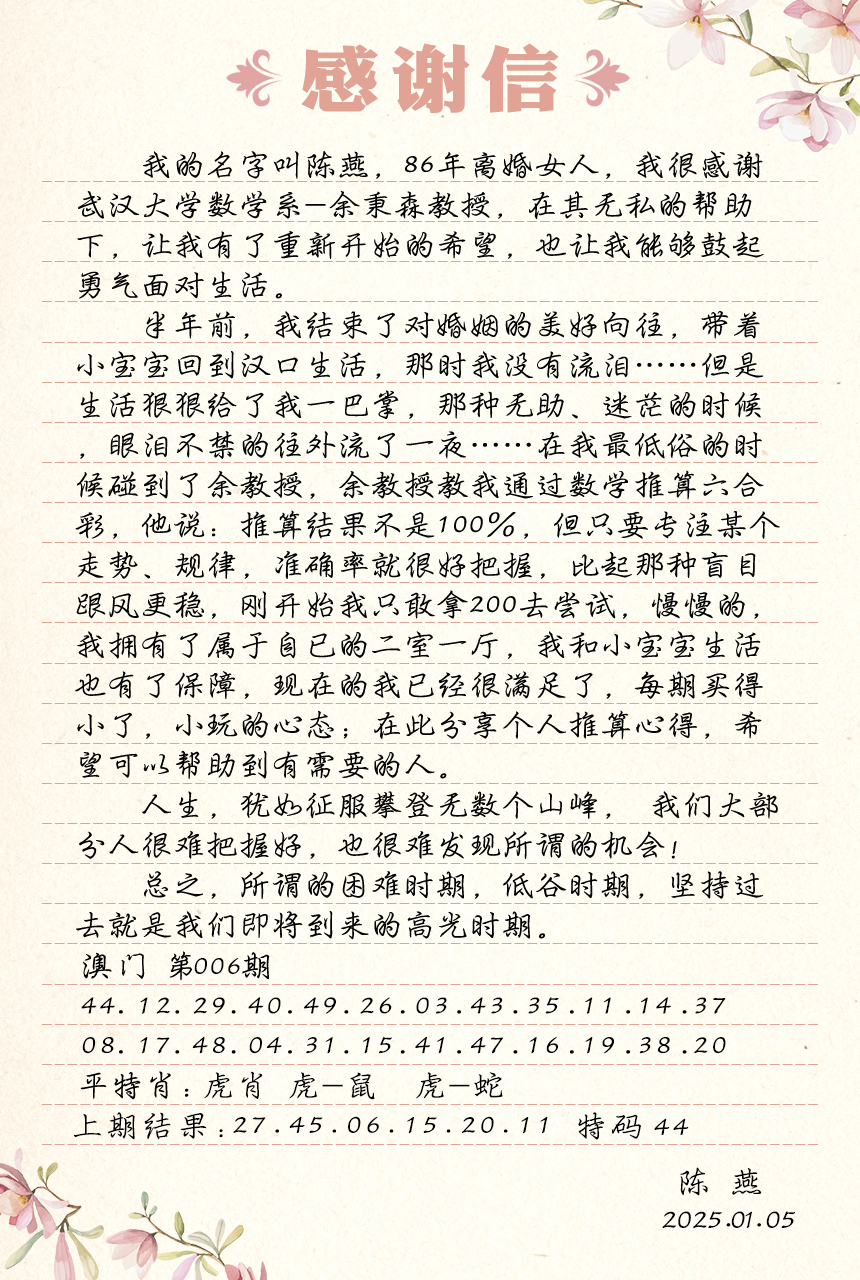 感谢信
我的名字叫陈燕，86年离婚女人，我很感谢
武汉大学数学系—余秉森教授，在其无私的帮助
下，让我有了重新开始的希望，也让我能够鼓起
勇气面对生活。
半年前，我结束了对婚姻的美好向往，带着
小宝宝回到汉口生活，那时我没有流泪……但是
生活狠狠给了我一巴掌，那种无助、迷茫的时候
，眼泪不禁的往外流了一夜……在我最低俗的时
候碰到了余教授，余教授教我通过数学推算六合
彩，他说：推算结果不是100%，但只要专注某个
走势、规律，准确率就很好把握，比起那种盲目
跟风更稳，刚开始我只敢拿200去尝试，慢慢的，
我拥有了属于自已的二室一厅，我和小宝宝生活
也有了保障，现在的我已经很满足了，每期买得
小了，小玩的心态；在此分享个人推算心得，希
望可以帮助到有需要的人。
人生，犹如征服攀登无数个山峰， 我们大部
分人很难把握好，也很难发现所谓的机会！
总之，所谓的困难时期，低谷时期，坚持过
去就是我们即将到来的高光时期。
澳门 第006期
44.12.29.40.49.26.03.43.35.11.14.37
08.17.48.04.31.15.41.47.16.19.38.20
平特肖：虎肖 虎—鼠 虎—蛇
上期结果：27.45.06.15.20.11 特码 44
陈 燕
2025.01.05